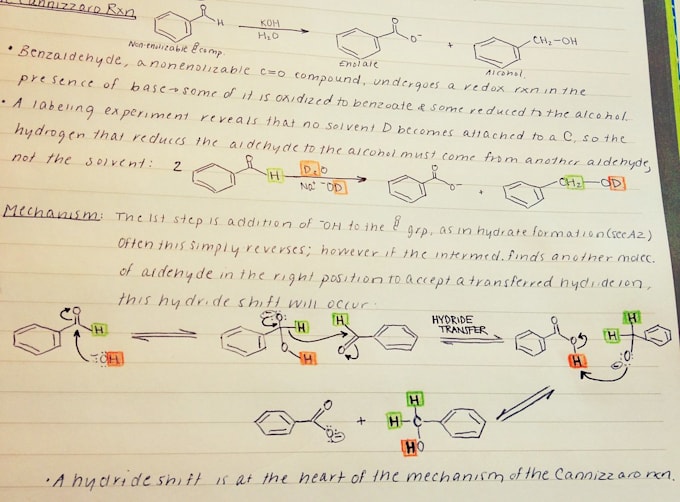 Cannizzaro Rxn
O
H
KOH
H₂O
O
O⁻
+
CH₂-OH
Non-enolizable comp.
Enolate
Alcohol.
• Benzaldehyde, a nonenolizable c=o compound, undergoes a redox rxn in the
presence of base → some of it is oxidized to benzoate & some reduced to the alcohol.
• A labeling experiment reveals that no solvent D becomes attached to a C, so the
hydrogen that reduces the aldehyde to the alcohol must come from another aldehyde,
not the solvent: 2
O
H
D₂O
Na⁺ ⁻OD
O
O⁻
+
CH₂-OD
Mechanism: The 1st step is addition of ⁻OH to the grp, as in hydrate formation (see A2)
Often this simply reverses; however if the intermed. finds another molec.
of aldehyde in the right position to accept a transferred hydride ion,
this hydride shift will occur.
O H
OH
O H
O H
H
O
HYDRIDE
TRANSFER
O
O
H
H
H
O
O
O
+
H
H-C
HO
• A hydride shift is at the heart of the mechanism of the Cannizzaro rxn.